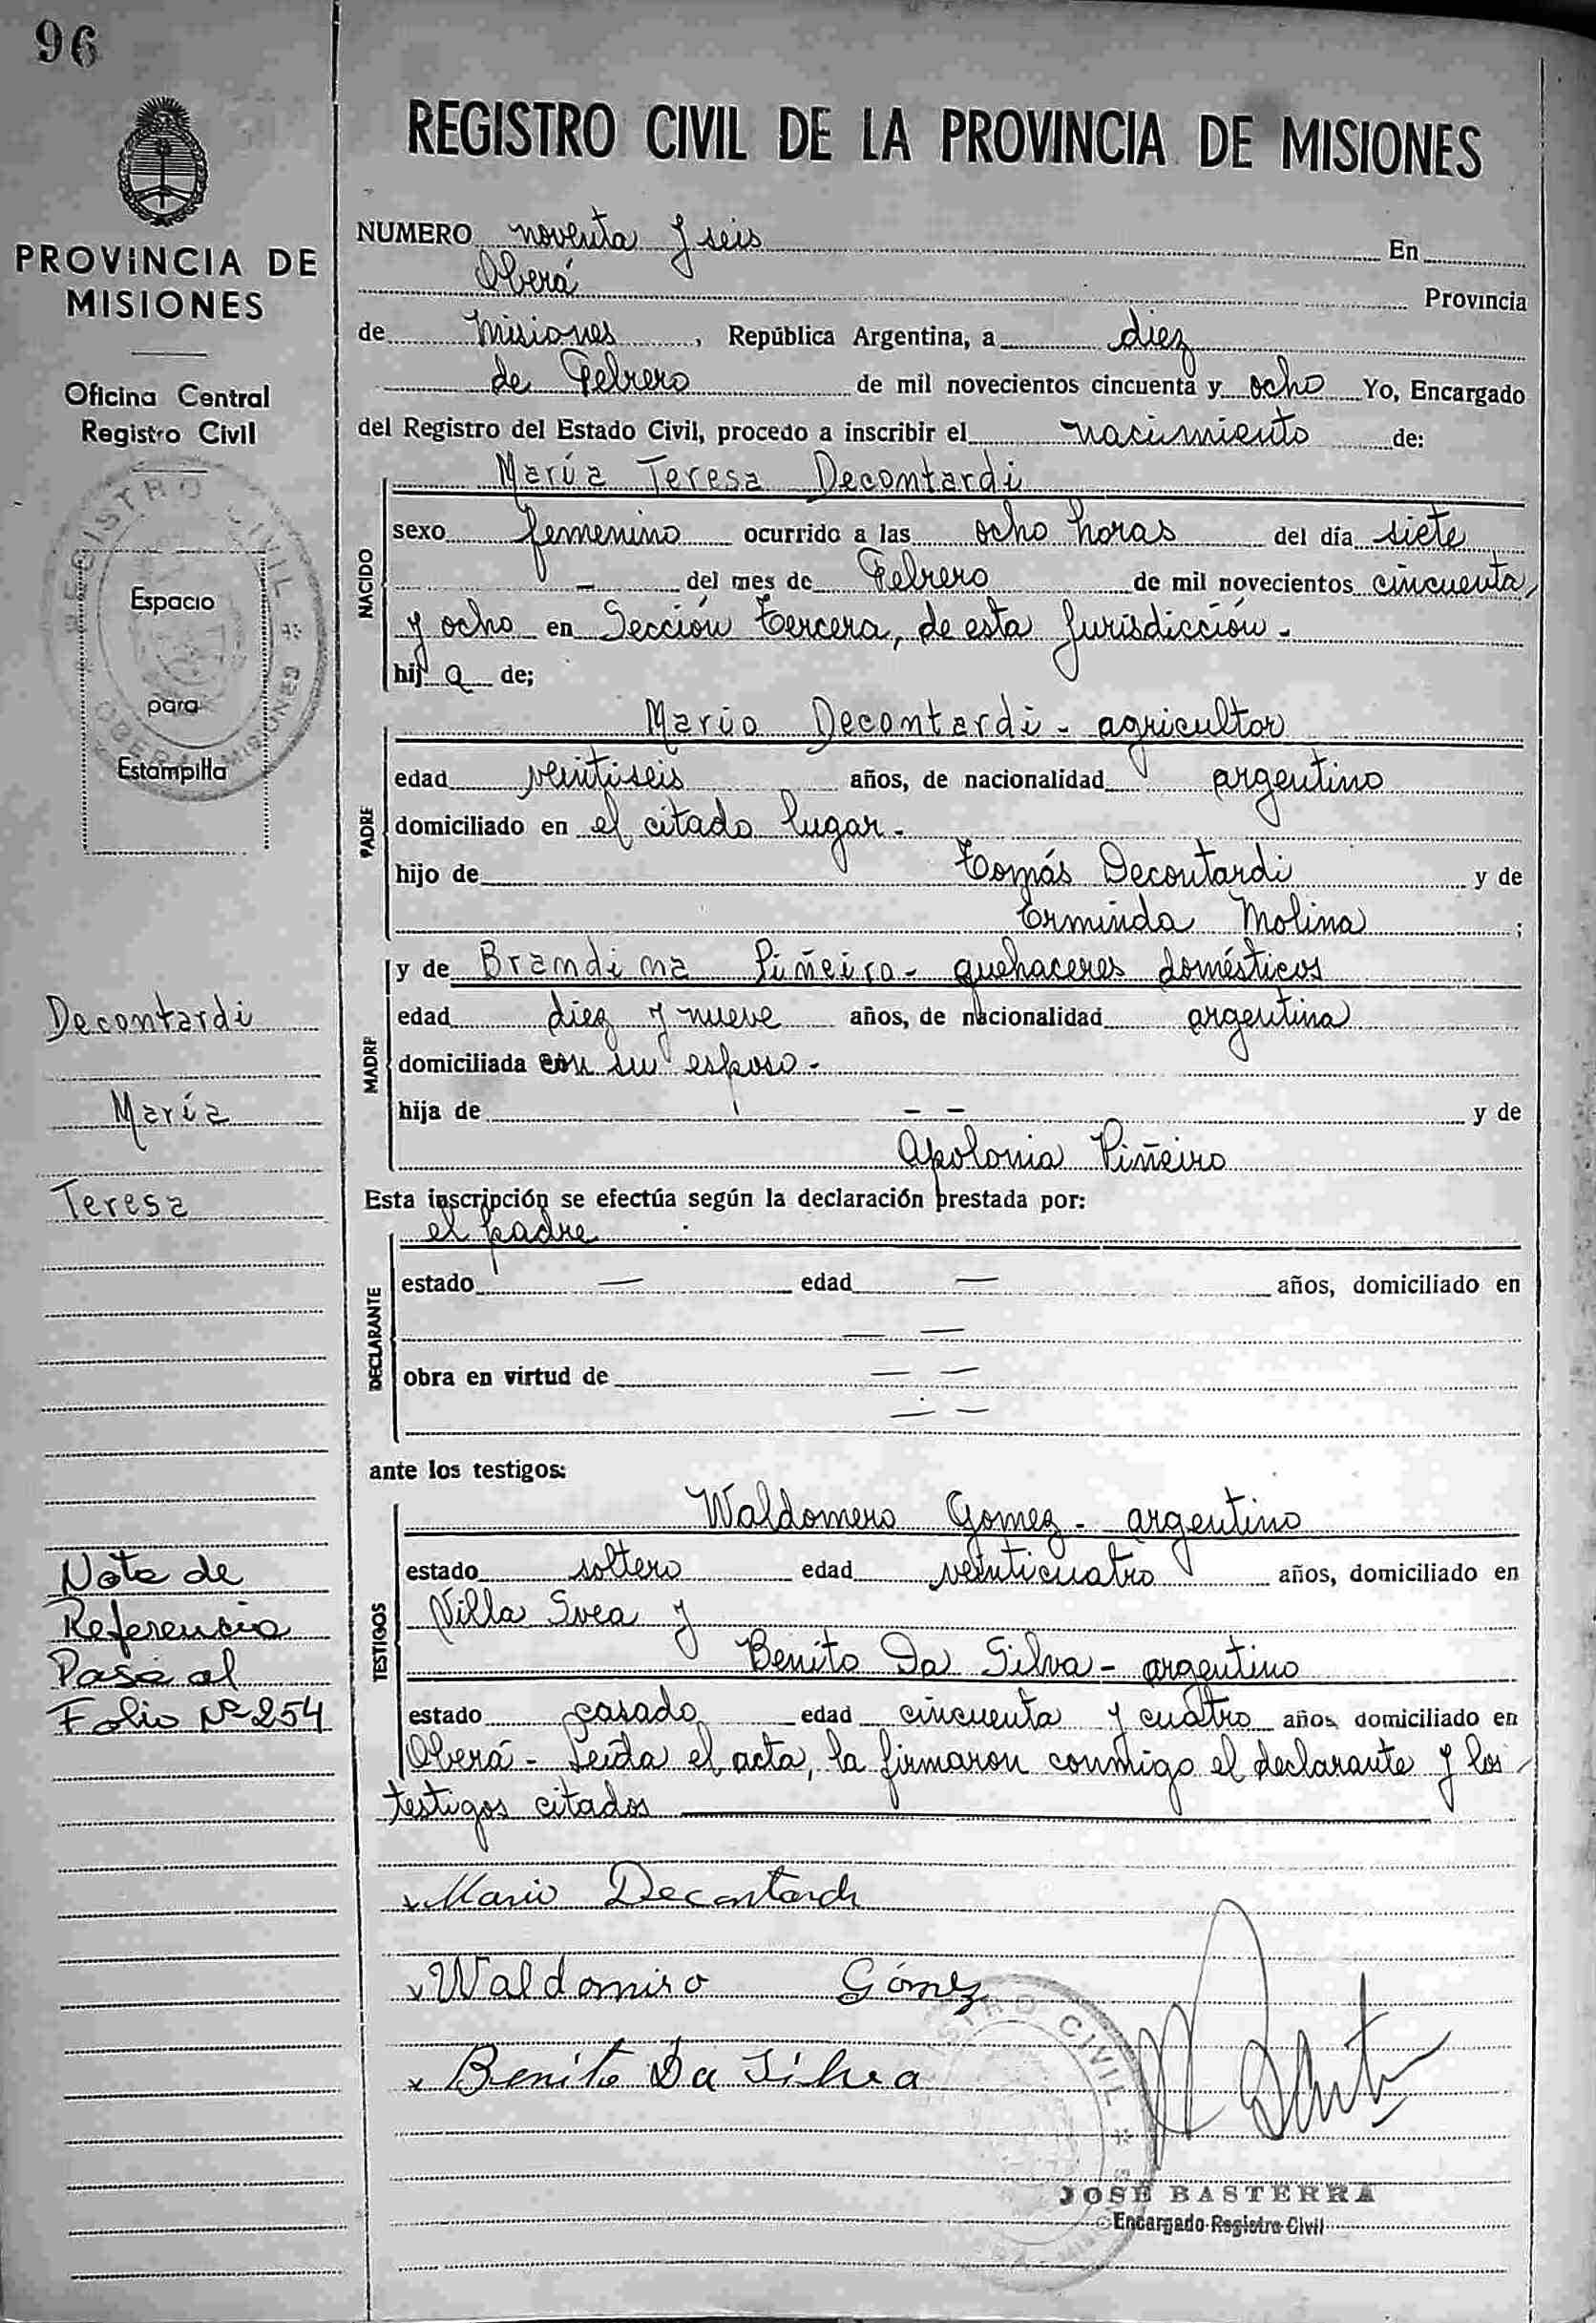 96
PROVINCIA DE
MISIONES
Oficina Central
Registro Civil
REGISTRO CIVIL
OBERÁ MISIONES
Espacio
para
Estampilla
Decontardi
María
Teresa
Nota de
Referencia
Pase al
Folio Nº 254
REGISTRO CIVIL DE LA PROVINCIA DE MISIONES
NUMERO noventa y seis En
Oberá Provincia
de Misiones, República Argentina, a diez
de Febrero de mil novecientos cincuenta y ocho Yo, Encargado
del Registro del Estado Civil, procedo a inscribir el nacimiento de:
NACIDO
María Teresa Decontardi
sexo femenino ocurrido a las ocho horas del día siete
- del mes de Febrero de mil novecientos cincuenta
y ocho en Sección Tercera, de esta Jurisdicción.-
hij a de;
PADRE
Mario Decontardi - agricultor
edad veintiseis años, de nacionalidad argentino
domiciliado en el citado lugar.-
hijo de Tomás Decontardi y de
Erminda Molina ;
MADRE
y de Brandina Piñeiro - quehaceres domésticos
edad diez y nueve años, de nacionalidad argentina
domiciliada con su esposo.-
hija de - - y de
Apolonia Piñeiro
Esta inscripción se efectúa según la declaración prestada por:
DECLARANTE
el padre
estado — edad — años, domiciliado en
— —
obra en virtud de — —
— —
ante los testigos:
TESTIGOS
Waldomero Gomez - argentino
estado soltero edad veinticuatro años, domiciliado en
Villa Svea y
Benito Da Silva - argentino
estado casado edad cincuenta y cuatro años, domiciliado en
Oberá - Leída el acta, la firmaron conmigo el declarante y los
testigos citados
x Mario Decontardi
x Waldomiro Gómez
x Benito Da Silva
REGISTRO CIVIL
JOSÉ BASTERRA
Encargado Registro Civil